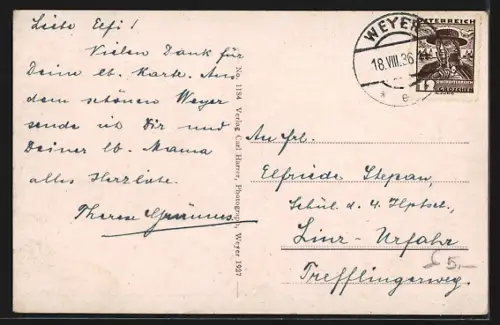 Liebe Elfi!
Vielen Dank für
Deine lb. Karte. Aus
dem schönen Weyer
sende ich Dir und
Deiner lb. Mama
alles Herzliche.
Therese
No. 1184 Verlag Carl Harrer, Photograph, Weyer 1927
WEYER
18.VIII.36
e
ÖSTERREICH
12
GROSCHEN
An Frl.
Elfriede Stepan,
Schül. d. 4. Hptsch.,
Linz-Urfahr
Trefflingerweg.
5,-